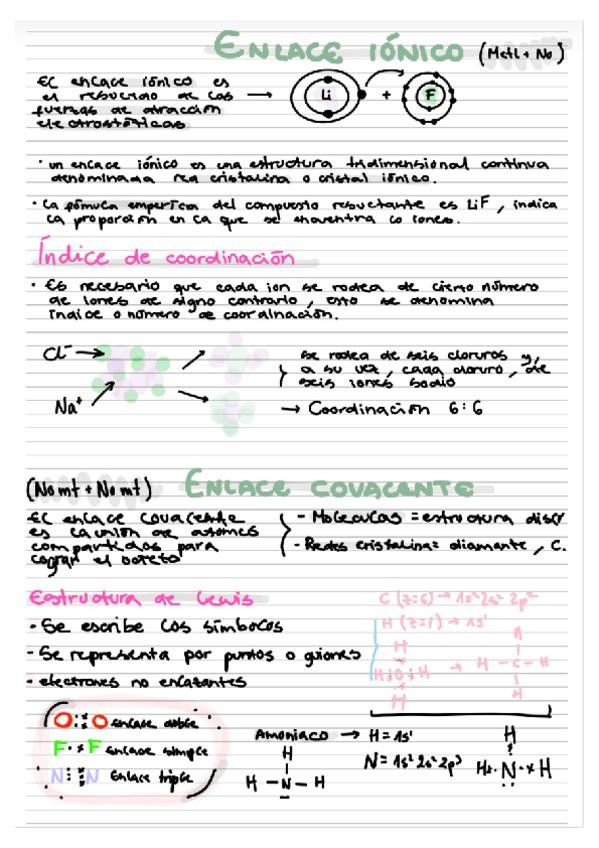 ENLACE IÓNICO (Metl + No)
El enlace iónico es
el resultado de las
fuerzas de atracción
electrostáticas
→ Li + F
· un enlace iónico es una estructura tridimensional continua
denominada red cristalina o cristal iónico.
· La fórmula empírica del compuesto resultante es LiF, indica
la proporción en la que se encuentra lo iones.
Índice de coordinación
· Es necesario que cada ion se rodea de cierto número
de iones de signo contrario, esto se denomina
índice o número de coordinación.
Cl⁻ →
Na⁺
se rodea de seis cloruros y,
a su vez, cada cloruro, de
seis iones sodio
→ Coordinación 6:6
(No mt + No mt) ENLACE COVALENTE
El enlace covalente
es la unión de átomos
compartidos para
lograr el octeto
- Moléculas = estructura discr
- Redes cristalina = diamante, C.
Estructura de Lewis
- Se escribe los símbolos
- Se representa por puntos o guiones
- electrones no enlazantes
C (z=6) → 1s² 2s² 2p²
H (z=1) → 1s¹
H
H C H → H - C - H
H
O :: O enlace doble
F · x F enlace simple
N ::: N Enlace triple
Amoniaco → H = 1s¹
N = 1s² 2s² 2p³
H
H - N - H
H
H x · N · x H